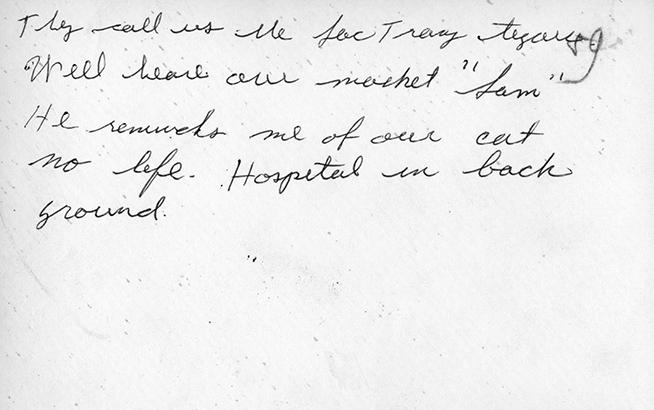 They call us the Loc Tracy tigers
Well heare our mosket "Sam"
He reminds me of our cat
no life. Hospital in back
ground.